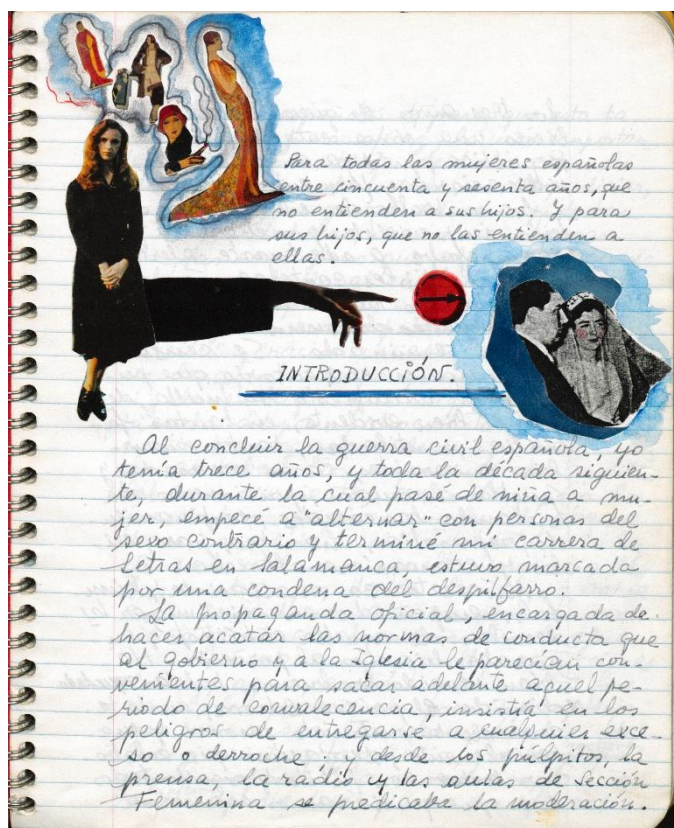 Para todas las mujeres españolas
entre cincuenta y sesenta años, que
no entienden a sus hijos. Y para
sus hijos, que no las entienden a
ellas.
INTRODUCCIÓN.
Al concluir la guerra civil española, yo
tenía trece años, y toda la década siguien-
te, durante la cual pasé de niña a mu-
jer, empecé a "alternar" con personas del
sexo contrario y terminé mi carrera de
Letras en Salamanca, estuvo marcada
por una condena del despilfarro.
La propaganda oficial, encargada de
hacer acatar las normas de conducta que
al gobierno y a la Iglesia le parecían con-
venientes para sacar adelante aquel pe-
riodo de convalecencia, insistía en los
peligros de entregarse a cualquier exce-
so o derroche. y desde los púlpitos, la
prensa, la radio y las aulas de Sección
Femenina se predicaba la moderación.